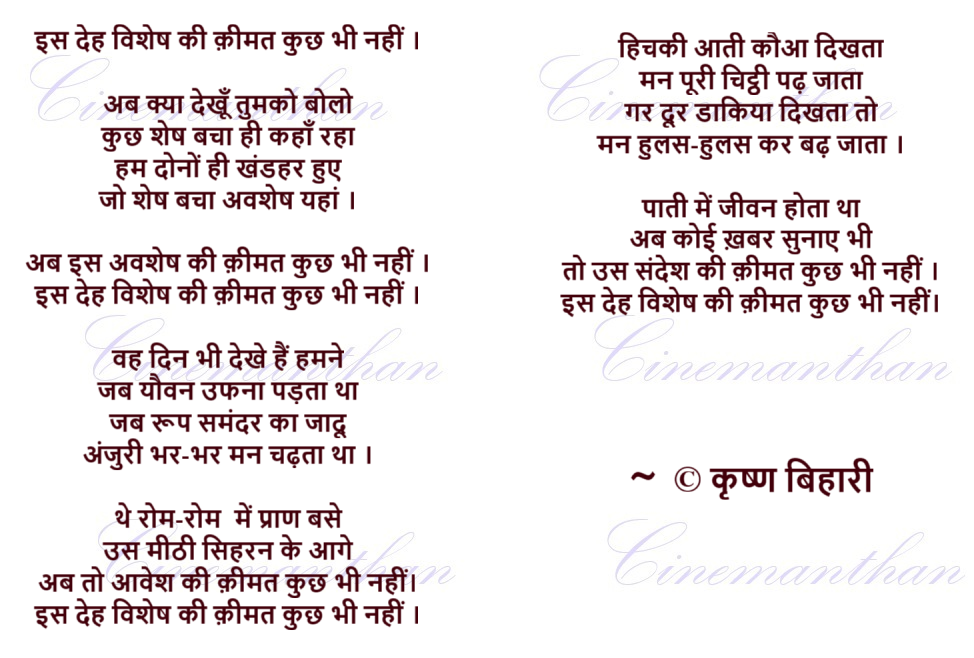 इस देह विशेष की क़ीमत कुछ भी नहीं ।
अब क्या देखूँ तुमको बोलो
कुछ शेष बचा ही कहाँ रहा
हम दोनों ही खंडहर हुए
जो शेष बचा अवशेष यहां ।
अब इस अवशेष की क़ीमत कुछ भी नहीं ।
इस देह विशेष की क़ीमत कुछ भी नहीं ।
वह दिन भी देखे हैं हमने
जब यौवन उफना पड़ता था
जब रूप समंदर का जादू
अंजुरी भर-भर मन चढ़ता था ।
थे रोम-रोम में प्राण बसे
उस मीठी सिहरन के आगे
अब तो आवेश की क़ीमत कुछ भी नहीं।
इस देह विशेष की क़ीमत कुछ भी नहीं ।
हिचकी आती कौआ दिखता
मन पूरी चिट्ठी पढ़ जाता
गर दूर डाकिया दिखता तो
मन हुलस-हुलस कर बढ़ जाता ।
पाती में जीवन होता था
अब कोई ख़बर सुनाए भी
तो उस संदेश की क़ीमत कुछ भी नहीं ।
इस देह विशेष की क़ीमत कुछ भी नहीं।
~ © कृष्ण बिहारी
Cinemanthan
Cinemanthan
Cinemanthan
Cinemanthan
Cinemanthan
Cinemanthan